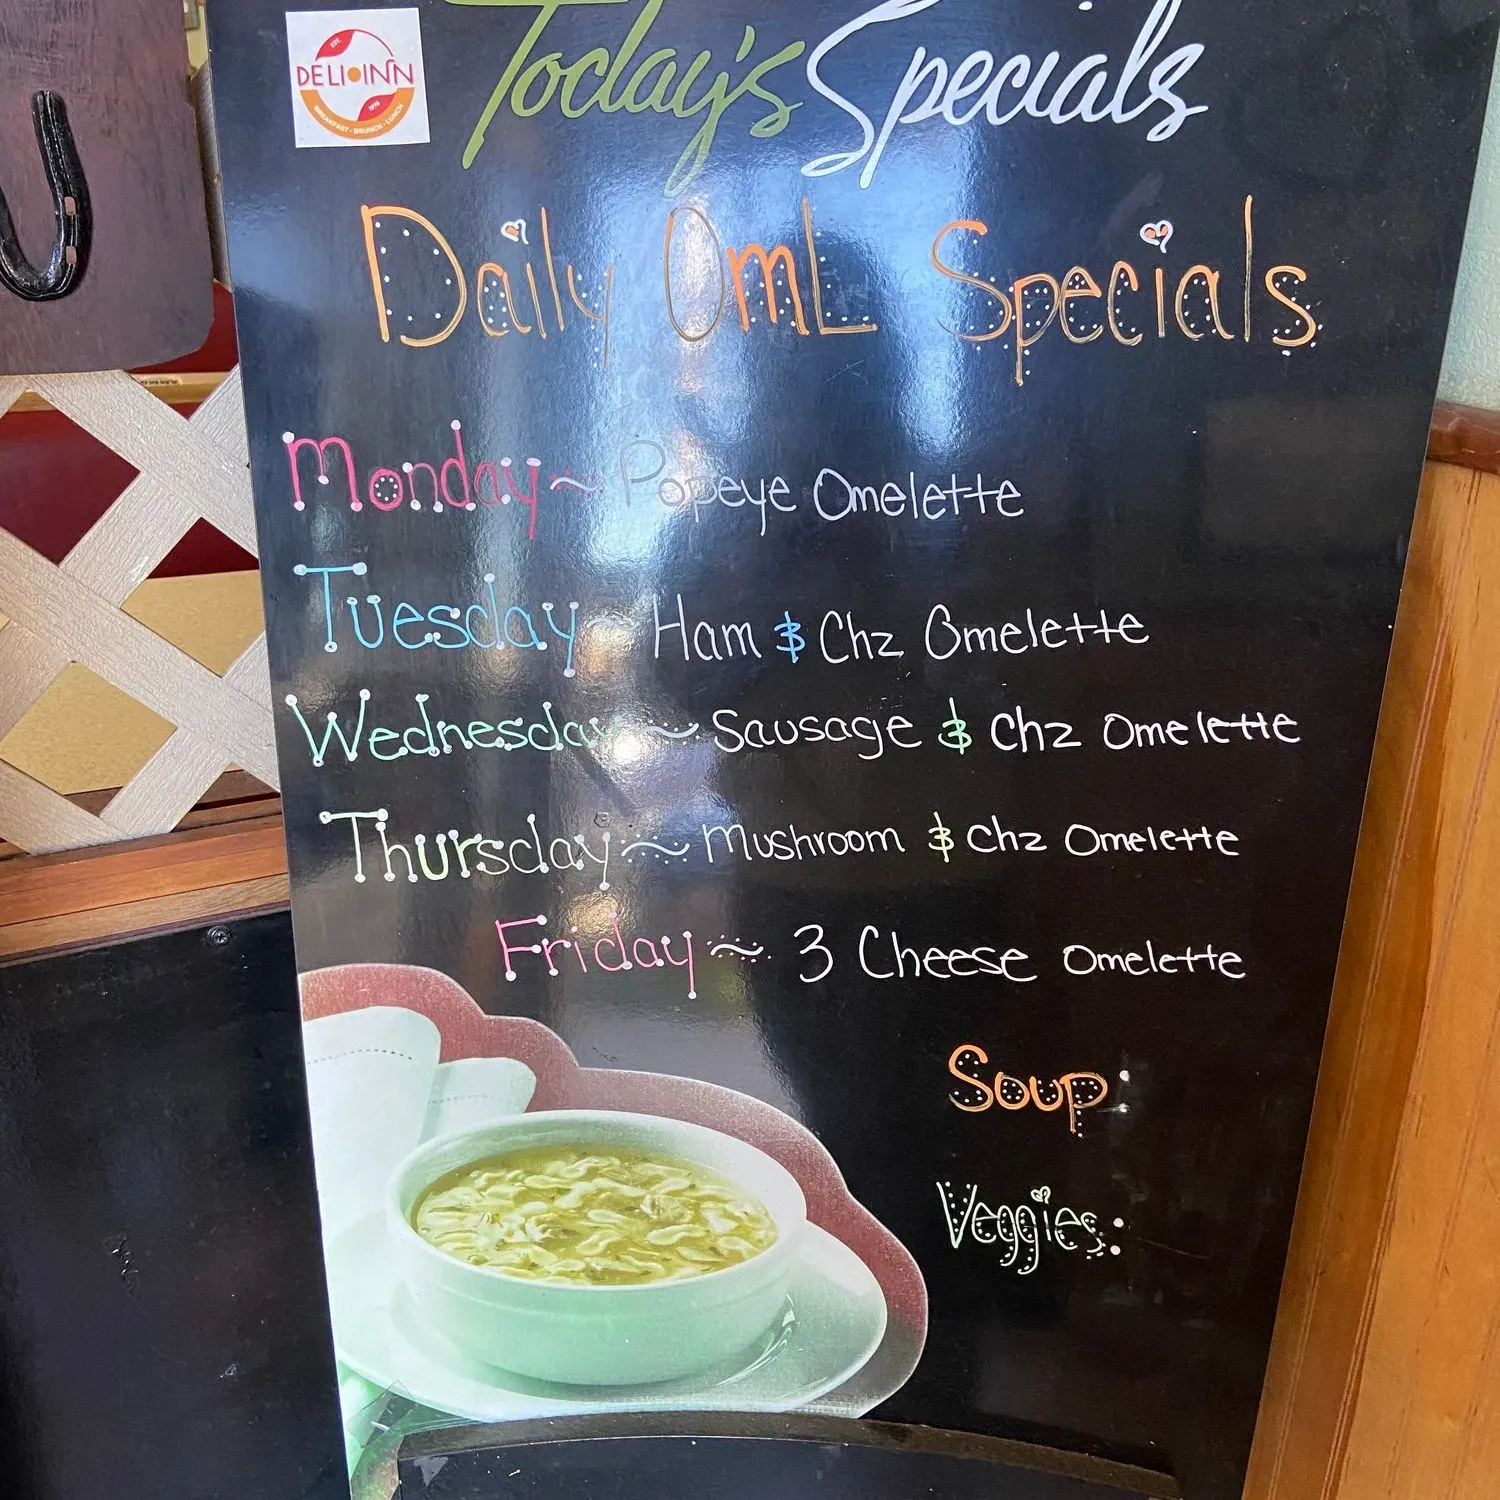 EST.
DELI INN
1978
BREAKFAST • BRUNCH • LUNCH
Today's Specials
Daily OmL Specials
Monday ~ Popeye Omelette
Tuesday ~ Ham & Chz Omelette
Wednesday ~ Sausage & Chz Omelette
Thursday ~ Mushroom & Chz Omelette
Friday ~ 3 Cheese Omelette
Soup:
Veggies: